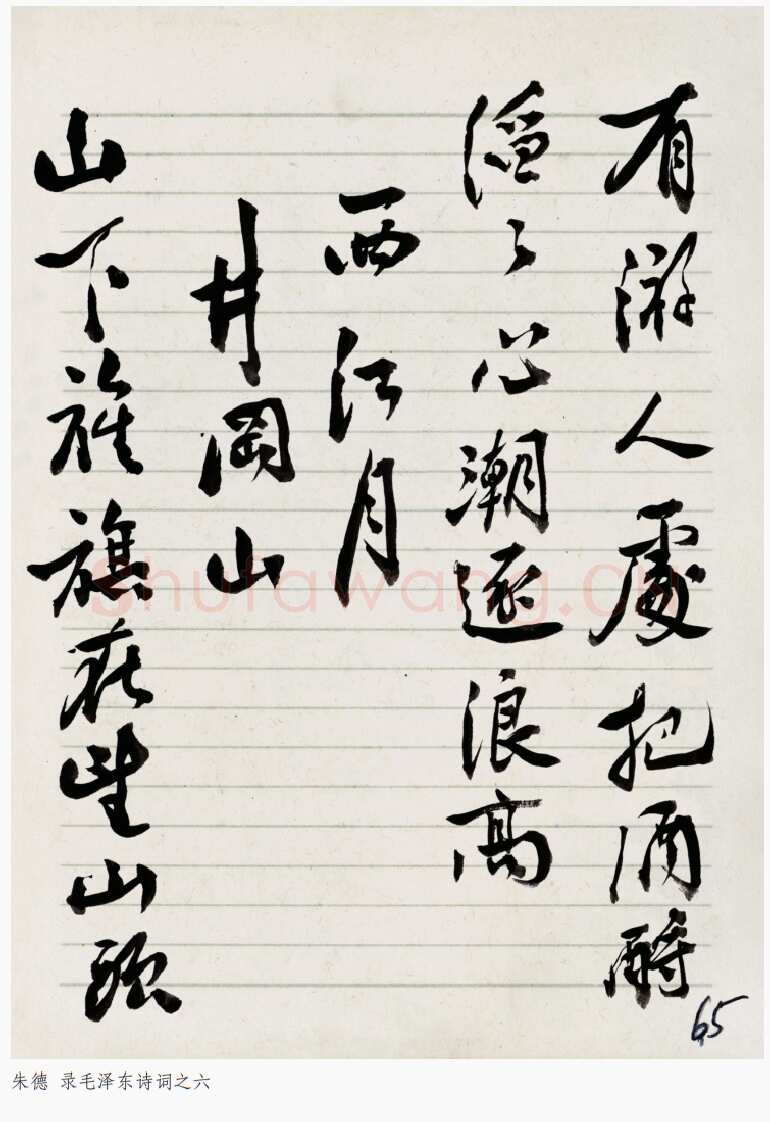 有游人處把酒酹
滔々心潮逐浪高
西江月
井岡山
山下旌旗在望山頭
65
shufawang.cn
朱德 录毛泽东诗词之六